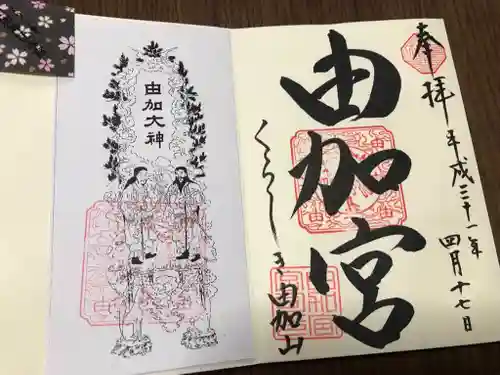 奉拝
平成三十一年
四月十七日
由加宮
くらしき由加山
由加大神